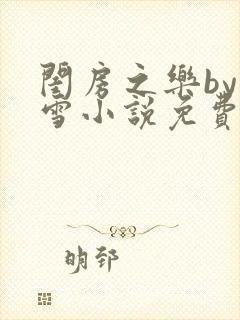 閨房之樂by
雪小說免費
明郅